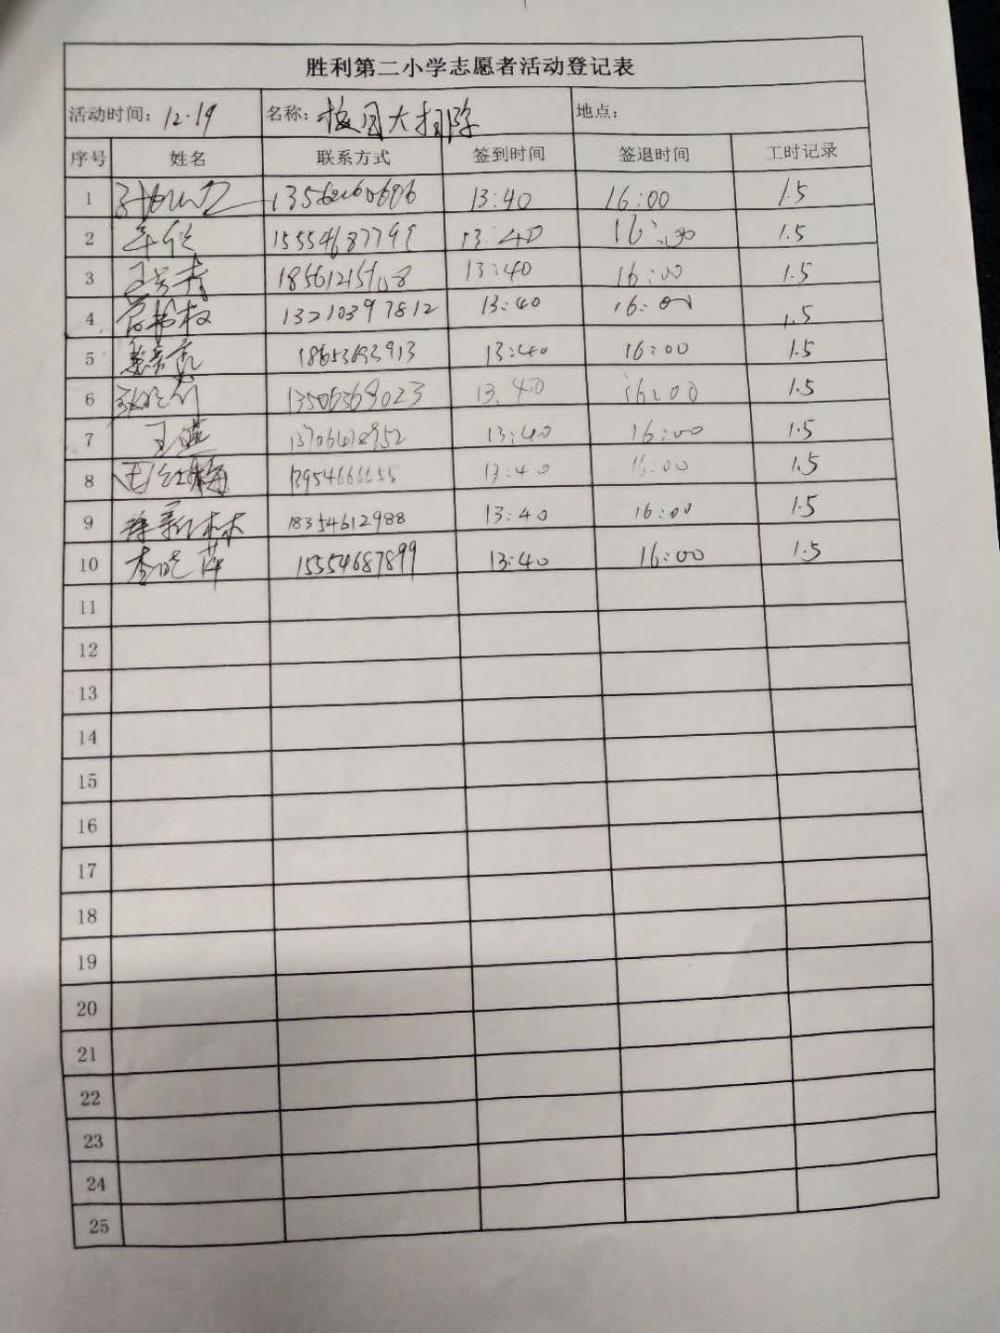 胜利第二小学志愿者活动登记表
活动时间：12.19 名称：校园大扫除 地点：
序号 姓名 联系方式 签到时间 签退时间 工时记录
1 13:40 16:00 1.5
2 15554687799 13:40 16:30 1.5
3 13:40 16:00 1.5
4 13210397812 13:40 16:00 1.5
5 18653693913 13:40 16:00 1.5
6 13506569023 13.40 16:00 1.5
7 王燕 13706412952 13:40 16:00 1.5
8 王红梅 13954666655 13:40 16:00 1.5
9 徐新林 18354612988 13:40 16:00 1.5
10 李晓萍 15554687899 13:40 16:00 1.5
11
12
13
14
15
16
17
18
19
20
21
22
23
24
25